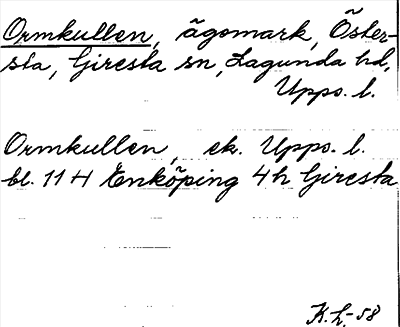 Ormkullen, ägomark, Öster-
sta, Giresta sn, Lagunda hd,
Upps. l.
Ormkullen, ek. Upps. l.
bl. 11 H Enköping 4h Giresta
K.L.-58